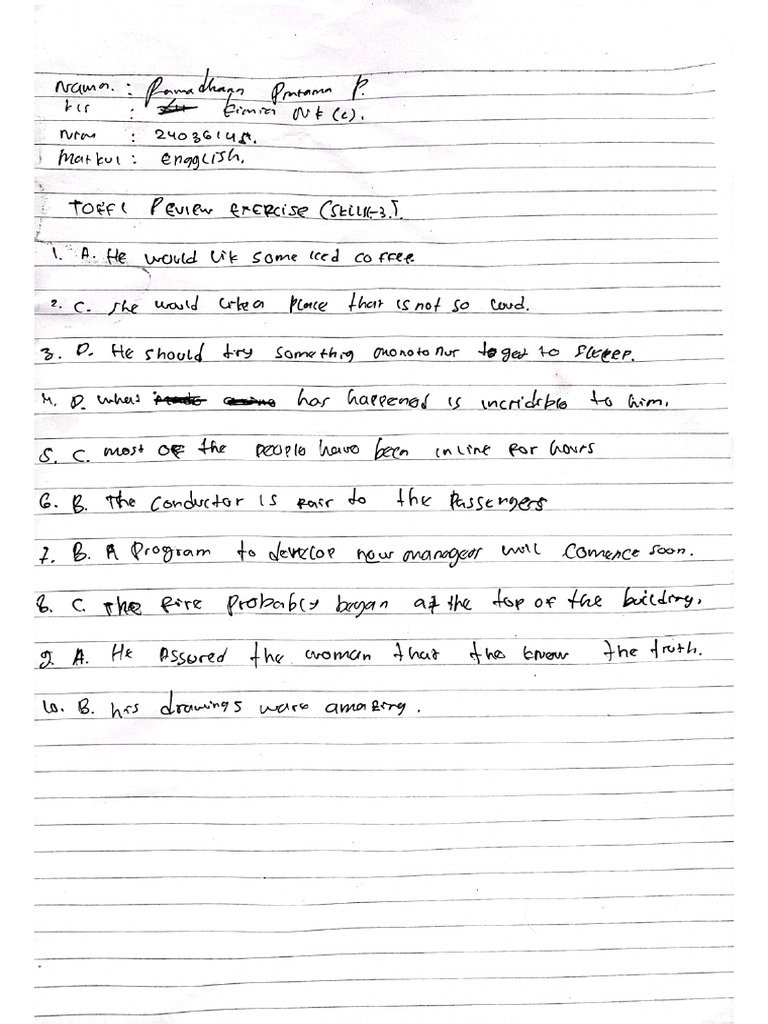 Nama : Ramadhan Pratama P.
Kls : Kimia Nk (C).
Nim : 24036145.
Matkul : Engglish.
TOEFL Review Exercise (Skill 1-3).
1. A. He would lik some iced coffee
2. C. She would like a place that is not so loud.
3. D. He should try somethig monotonus to get to sleeep.
4. D. What has happened is incridible to him.
5. C. most of the people have been in line for hours
6. B. The conductor is fair to the passengers
7. B. A program to develop new manageer will comence soon.
8. C. The fire probably began at the top of the building.
9. A. He assured the woman that the know the truth.
10. B. his drawings were amazing.